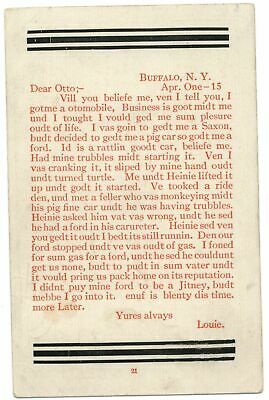 BUFFALO, N. Y.
Dear Otto;- Apr. One-15
Vill you beliefe me, ven I tell you, I
gotme a otomobile, Business is goot midt me
und I tought I vould ged me sum plesure
oudt of life. I vas goin to gedt me a Saxon,
budt decided to gedt me a pig car so godt me a
ford. Id is a rattlin goodt car, belief me.
Had mine trubbles midt starting it. Ven I
vas cranking it, it sliped by mine hand oudt
turned turtle. Me undt Heinie lifted it up
undt godt it started. Ve tooked a ride
den, und met a feller who vas monkeying midt
his pig fine car und we has having trubbles.
Heinie asked him vat vas wrong, undt he sed
he had a ford in his carureter. Heinie sed ven
you gedt it oudt I bedt its still runnin. Den our
ford stopped undt ve vas oudt of gas. I foned
for sum gas for a ford, undt he sed he couldunt
get us none, budt to pudt in sum vater undt
it vould pring us pack home on its reputation.
I didnt puy mine ford to be a Jitney, budt
mebbe I go into it. enuf is blenty dis time.
more Later. Yures alvays
Louie.
21